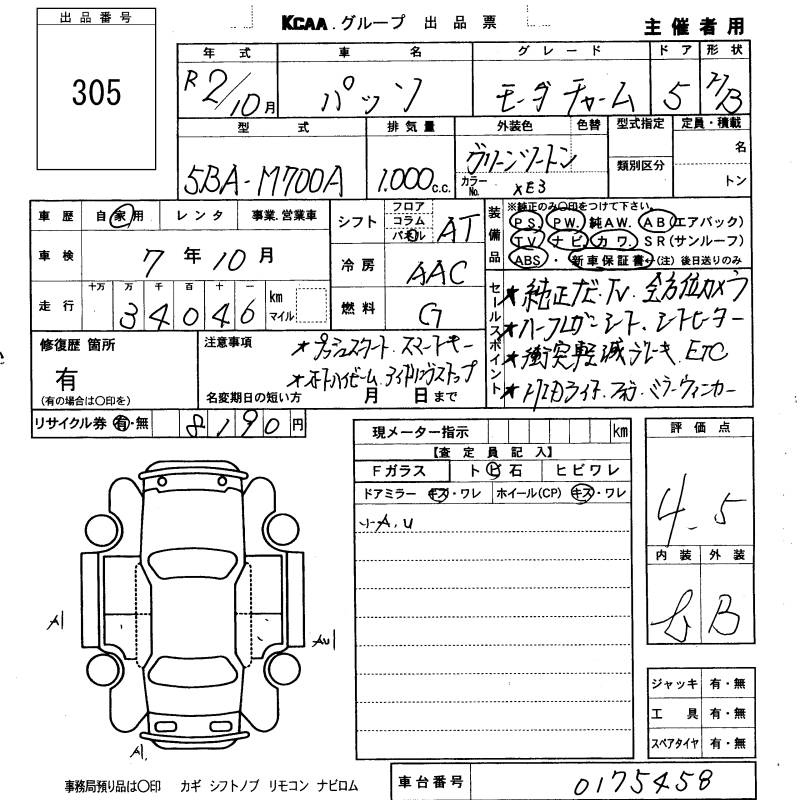 出品番号
305
KCAA.グループ 出品票
主催者用
年式 車名 グレード ドア 形状
R2/10月 パッソ モーダ チャーム 5 H/B
型式 排気量 外装色 色替 型式指定 定員・積載
5BA-M700A 1.000c.c. グリーンツートン 名
カラーNo. XE3 類別区分 トン
車歴 自家用 レンタ 事業.営業車
シフト フロア コラム パネル AT
装備品 ※純正のみ○印をつけて下さい。
PS. PW. 純AW. AB(エアバック)
TV. ナビ. カワ. SR(サンルーフ)
ABS・新車保証書←(注)後日送りのみ
車検 7年10月
冷房 AAC
走行 十万 万 千 百 十 一
34046 km マイル
燃料 G
セールスポイント
★純正ナビ.TV 全方位カメラ
★ハーフレザーシート.シートヒーター
★衝突軽減ブレーキ.ETC
★LEDライト フォグ ミラーウィンカー
修復歴 箇所
有
(有の場合は○印を)
注意事項
★プッシュスタート.スマートキー
★オートハイビーム.アイドリングストップ
名変期日の短い方 月 日まで
リサイクル券 有・無 8190円
現メーター指示 km
【査定員記入】
Fガラス ト ビ 石 ヒビワレ
ドアミラー キズ・ワレ ホイール(CP) キズ・ワレ
A.U
評価点
4.5
内装 外装
B
A1
AU1
A1.
ジャッキ 有・無
工具 有・無
スペアタイヤ 有・無
事務局預り品は○印 カギ シフトノブ リモコン ナビロム
車台番号 0175458